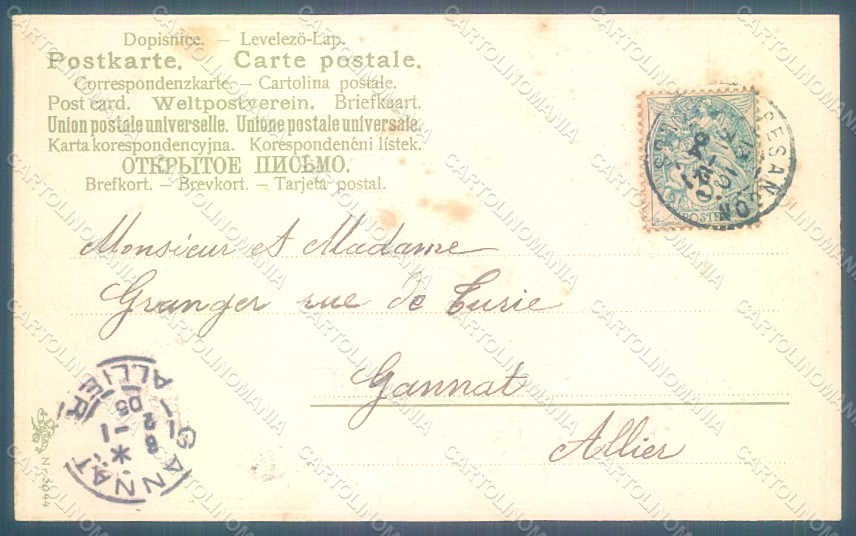 Dopisnice. — Levelező-Lap.
Postkarte. Carte postale.
Correspondenzkarte. — Cartolina postale.
Post card. Weltpostverein. Briefkaart.
Union postale universelle. Unione postale universale.
Karta korespondencyjna. Korespondenční lístek.
ОТКРЫТОЕ ПИСЬМО.
Brefkort. — Brevkort. — Tarjeta postal.
BESANÇON
POSTES
Monsieur et Madame
Granger rue de Turie
Gannat
Allier
GANNAT
ALLIER
N. 2044
CARTOLINOMANIA